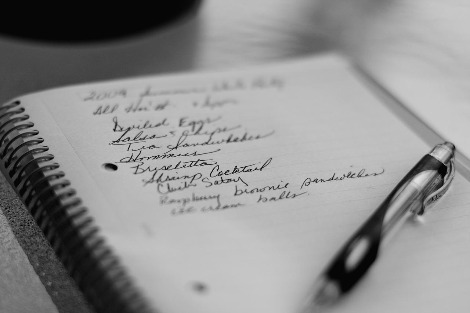 2009 Summer White Party
All
Deviled Eggs
Salsa + Chips
Tea Sandwiches
Hommus
Bruschetta
Shrimp Cocktail
Chick Satay
Raspberry brownie sandwiches
ice cream balls